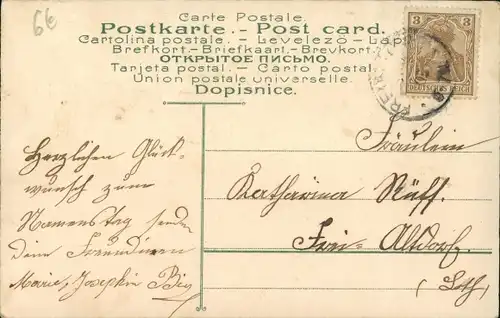 6€
Carte Postale.
Postkarte. - Post card.
Cartolina postale. - Levelezö - Lap
Brefkort. - Briefkaart. - Brevkort.
ОТКРЫТОЕ ПИСЬМО.
Tarjeta postal. - Carto postal.
Union postale universelle.
Dopisnice.
3 3
DEUTSCHES REICH
Herzlichen Glück-
wunsch zum
Namenstag senden
deine Freundinnen
Marie, Josephin
Fräulein
Katharina Rüff.
Altdorf.
(Loth)